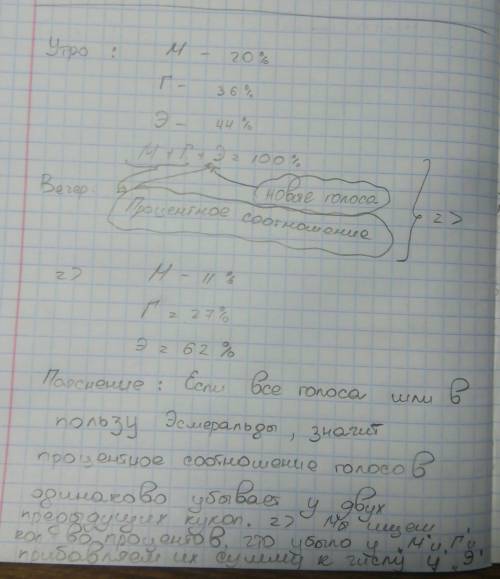 Утро : М - 20%
Г - 36%
Э - 44%
М + Г + Э = 100%
Вечер: новые голоса
Процентное соотношение
=> М - 11 %
Г = 27%
Э = 62 %
Пояснение : Если все голоса шли в
пользу Эсмеральды, значит
процентное соотношение голосов
одинаково убывает у двух
предыдущих кукол. => Мы ищем
кол-во процентов, что убыло у "М" и "Г" и
прибавляем их сумму к числу у "Э"